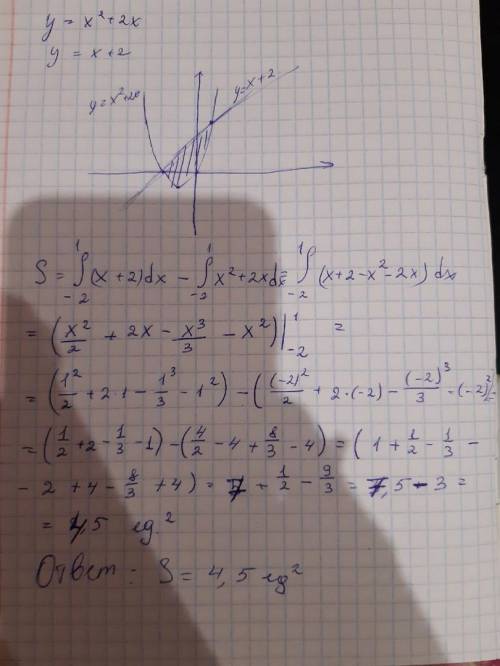 y = x² + 2x
y = x + 2
y = x² + 2x
y = x + 2
S = ∫₋₂¹ (x + 2) dx − ∫₋₂¹ x² + 2x dx = ∫₋₂¹ (x + 2 − x² − 2x) dx
= (x²/2 + 2x − x³/3 − x²) |₋₂¹ =
= (1²/2 + 2·1 − 1³/3 − 1²) − ((−2)²/2 + 2·(−2) − (−2)³/3 − (−2)²) =
= (1/2 + 2 − 1/3 − 1) − (4/2 − 4 + 8/3 − 4) = (1 + 1/2 − 1/3 −
− 2 + 4 − 8/3 + 4) = 7 + 1/2 − 9/3 = 7,5 − 3 =
= 4,5 ед.²
Ответ: S = 4,5 ед²